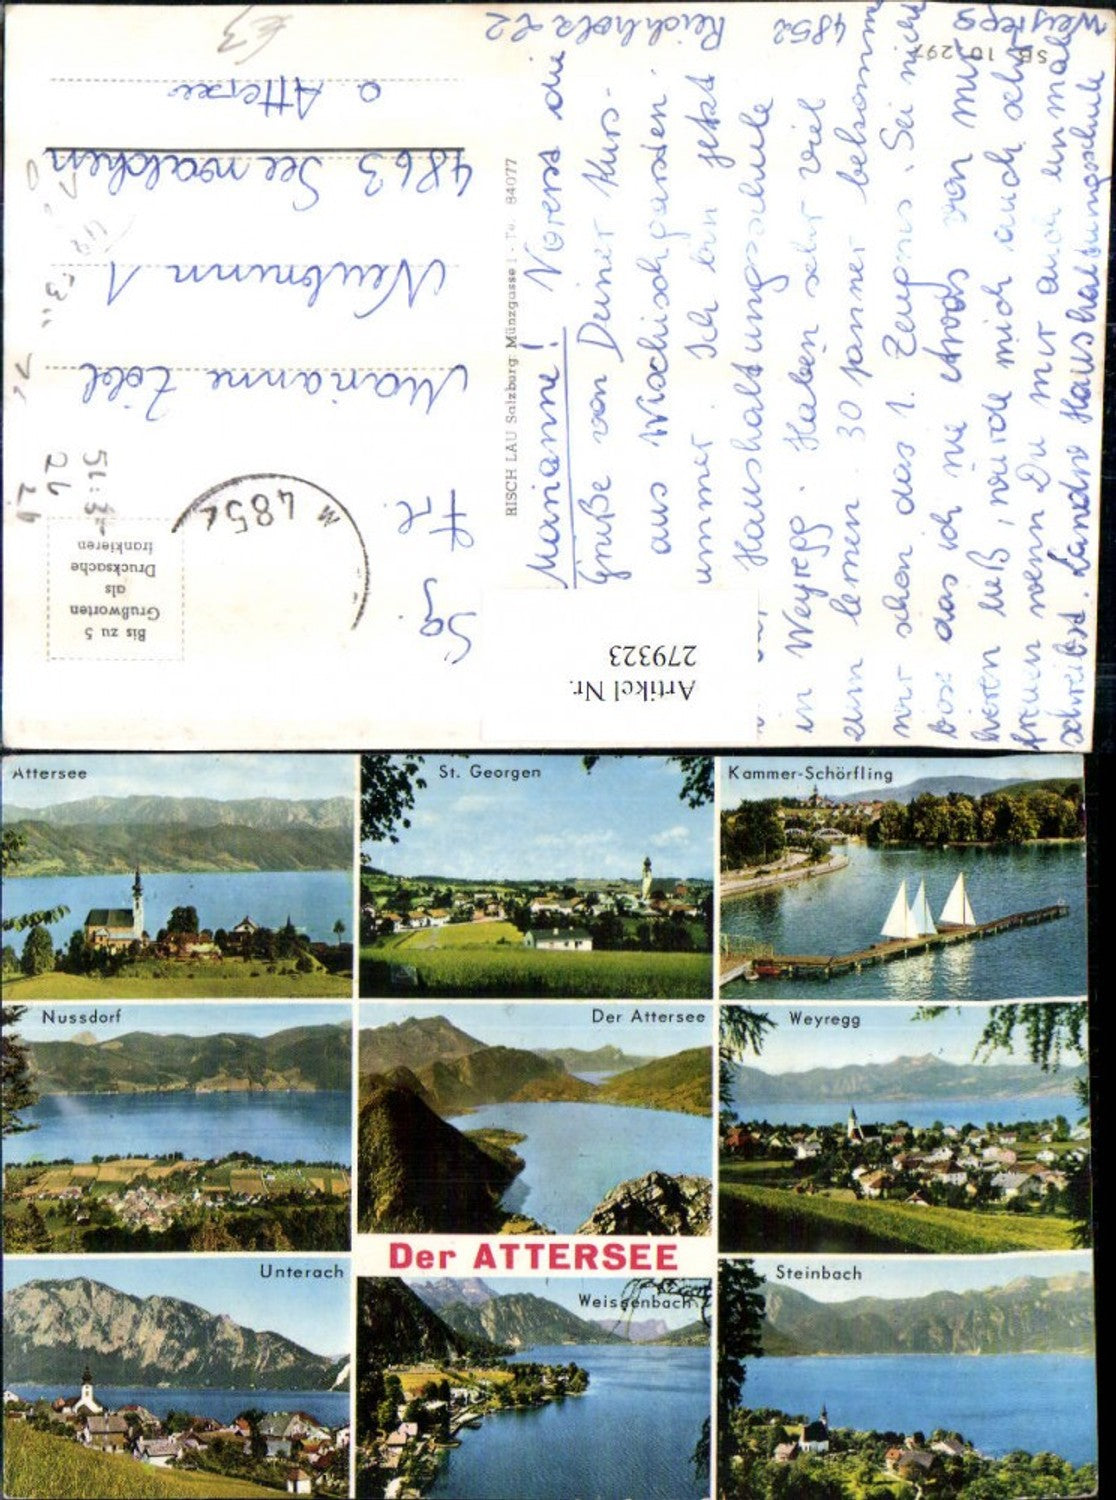 Reichholz 22
4852
Weyregg
SB 10.297
Marianne! Vorerst die
Grüße von Deiner Kurs-
aus Wischischgarsten
immer. Ich bin jetzt
Haushaltungsschule
in Weyregg. Haben sehr viel
zum lernen. 30 Jänner bekommen
wir schon das 1. Zeugnis. Sei nicht
böse das ich nie etwas von mir
hören ließ, würde mich auch sehr
freuen wenn Du mir auch einmal
schreibst. Landw Haushaltungsschule
RISCH LAU Salzburg Münzgasse 1 - Te. 84077
Bis zu 5
Grußworten
als
Drucksache
frankieren
4852
Sg.
Frl.
Marianne Zobl
Neubrunn 1
4863 Seewalchen
a. Attersee
€3
Artikel Nr.
279323
Attersee
St. Georgen
Kammer-Schörfling
Nussdorf
Der Attersee
Weyregg
Der ATTERSEE
Unterach
Weissenbach
Steinbach